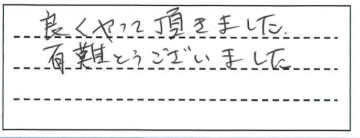 良くやって頂きました.
有難とうございました